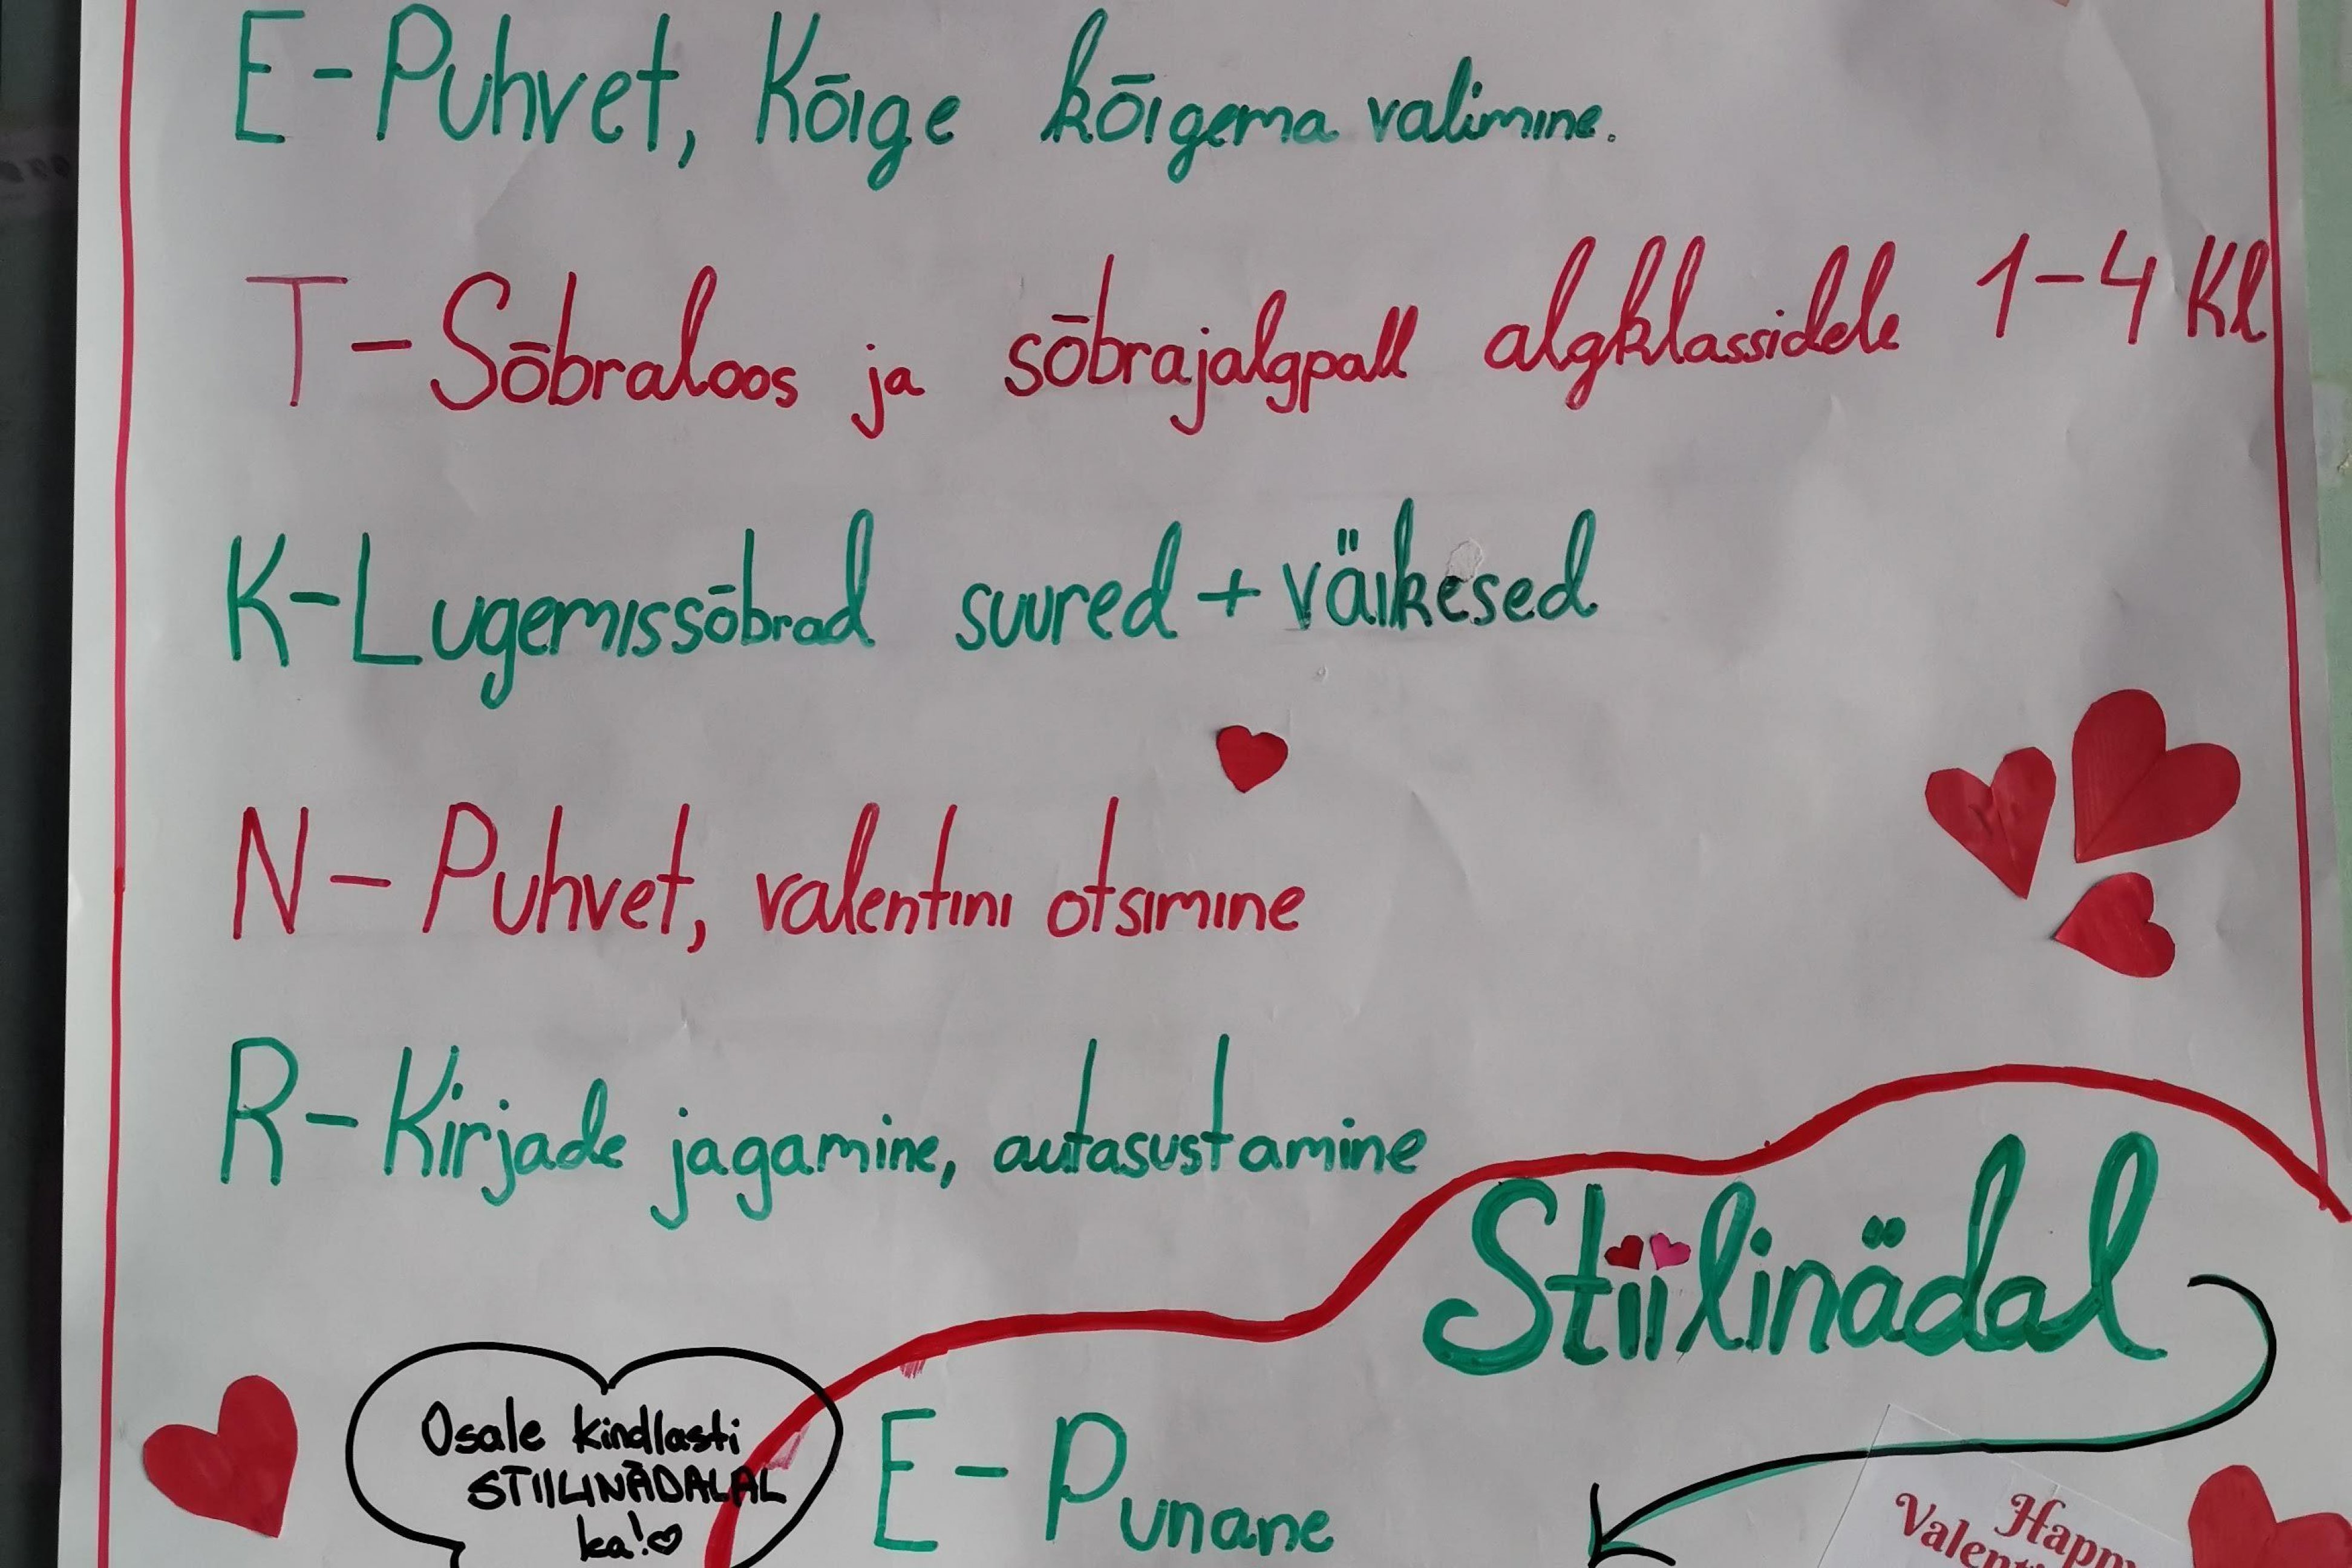 E - Puhvet, Kõige kõigema valimine.
T - Sõbraloos ja sõbrajalgpall algklassidele 1-4 Kl
K - Lugemissõbrad suured + väikesed
N - Puhvet, valentini otsimine
R - Kirjade jagamine, autasustamine
Stiilinädal
Osale kindlasti
STIILINÄDALAL
ka!
E - Punane
Happy